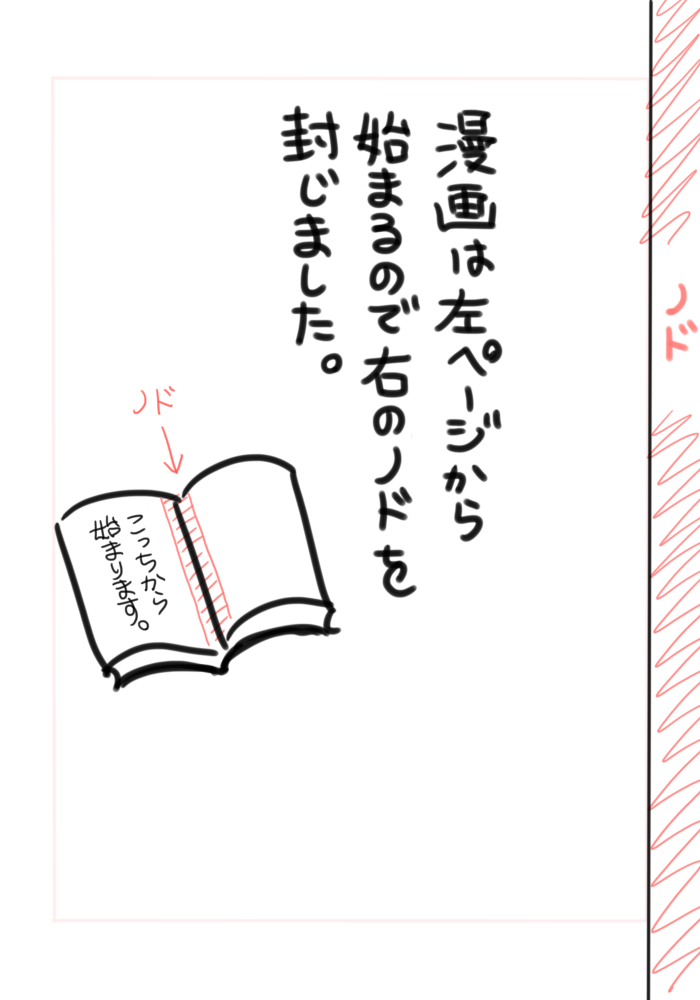 漫画は左ページから
始まるので右のノドを
封じました。
ノド
ノド
こっちから
始まります。